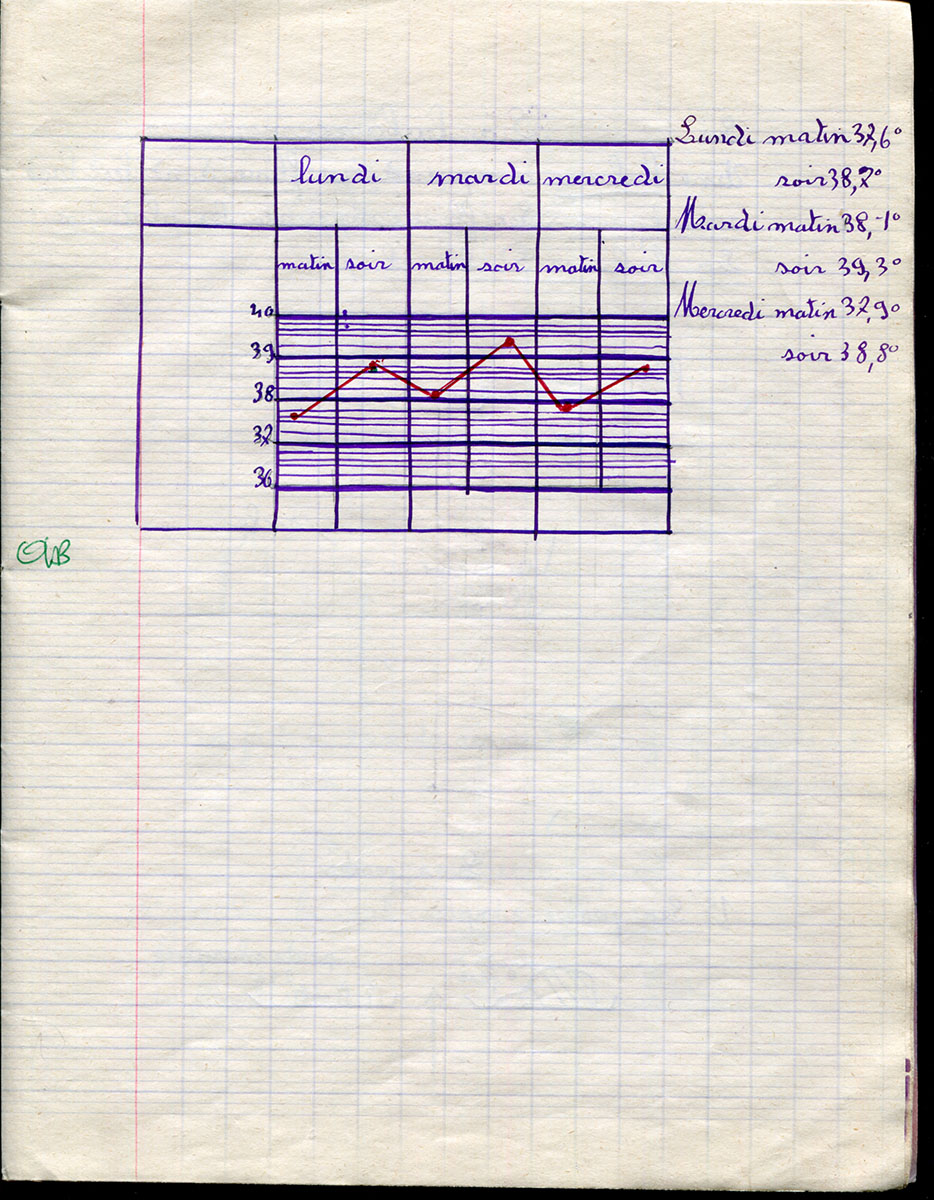 Lundi matin 37,6°
soir 38,7°
Mardi matin 38,1°
soir 39,3°
Mercredi matin 37,9°
soir 38,8°
lundi mardi mercredi
matin soir matin soir matin soir
40
39
38
37
36